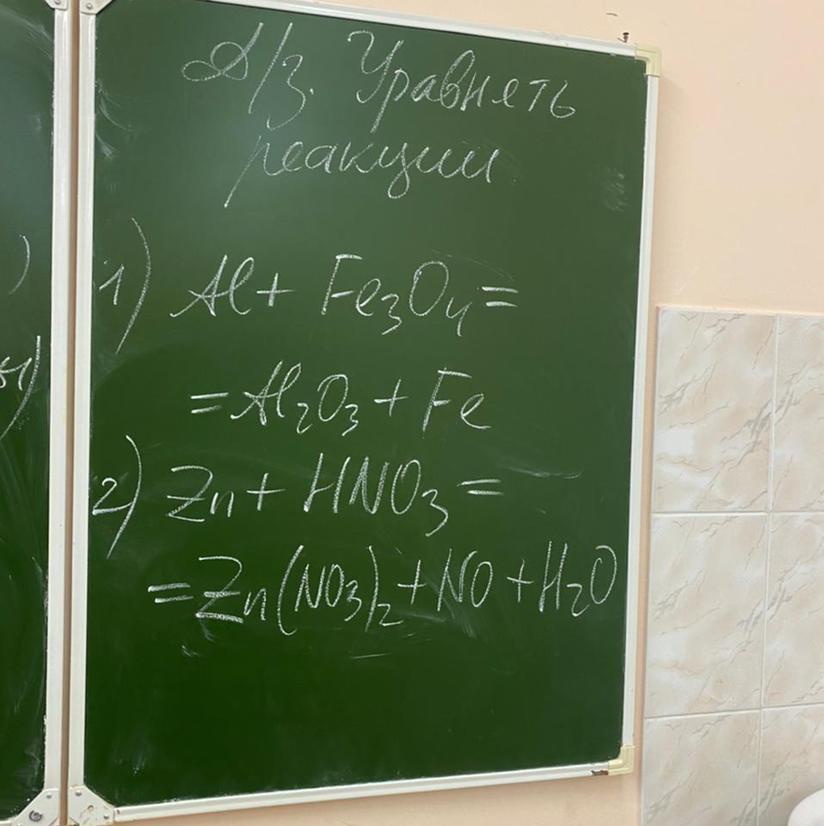 Д/з. Уравнять
реакции
1) Al + Fe₃O₄ =
= Al₂O₃ + Fe
2) Zn + HNO₃ =
= Zn(NO₃)₂ + NO + H₂O